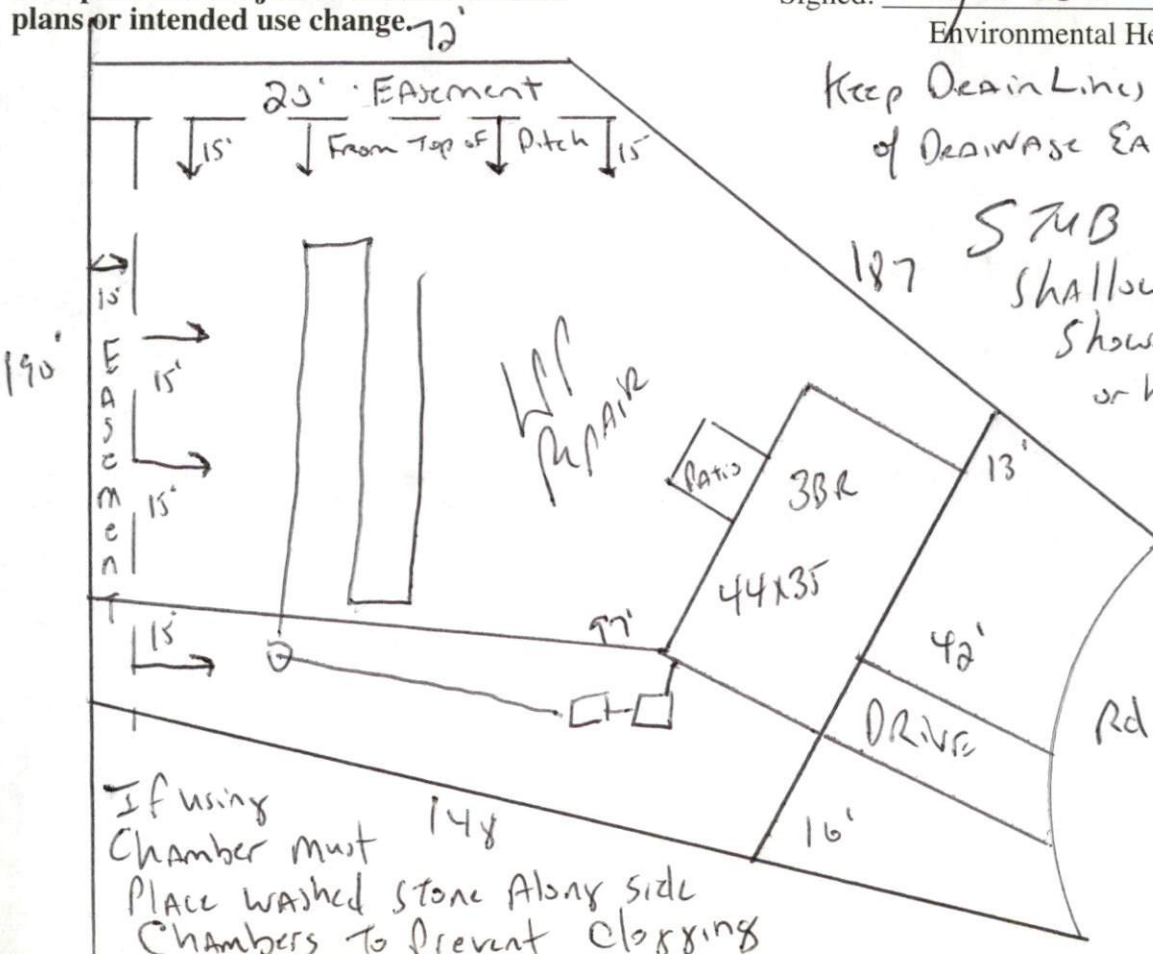 plans or intended use change.
Signed:
Environmental He
72'
20' Easement
15'
From Top of Ditch
15
Keep Drain Lines
of Drainage Ea
STUB
Shallow
Show
or
187
190'
15'
Easement
15'
15'
15'
Repair
Patio
3BR
44x35
13'
97'
42'
DRIVE
Rd
16'
148
If using
Chamber must
Place washed stone Along side
Chambers To Prevent Clogging